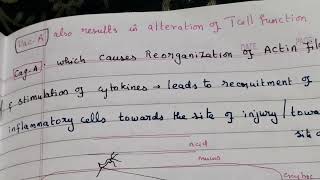 Vac-A also results in alteration of T cell function
Cag-A: which causes Reorganization of Actin Fil
/ f stimulation of cytokines → leads to recruitment of
inflammatory cells towards the site of injury / towar
site o
acid
mucus